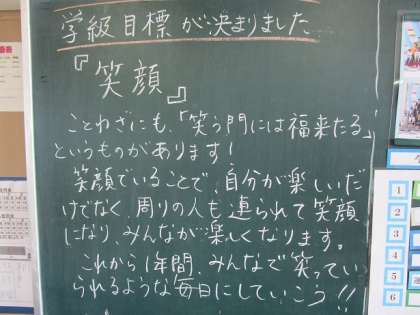 学級目標が決まりました
『笑顔』
ことわざにも、「笑う門には福来たる」
というものがあります!
笑顔でいることで、自分が楽しいだ
けでなく、周りの人も連られて笑顔
になり、みんなが楽しくなります。
これから1年間、みんなで笑ってい
られるような毎日にしていこう!!
1
2
3
4
5
6